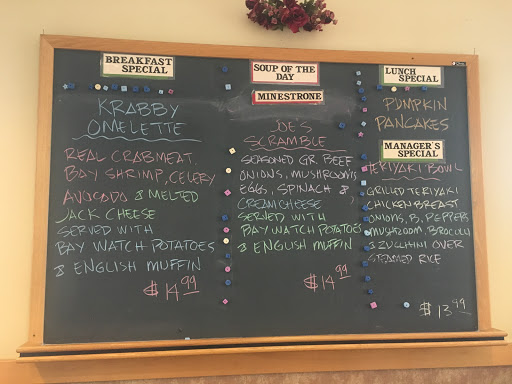 BREAKFAST
SPECIAL
KRABBY
OMELETTE
REAL CRABMEAT,
BAY SHRIMP, CELERY
AVOCADO & MELTED
JACK CHEESE
SERVED WITH
BAY WATCH POTATOES
& ENGLISH MUFFIN
$14.99
SOUP OF THE
DAY
MINESTRONE
JOE'S
SCRAMBLE
SEASONED GR. BEEF
ONIONS, MUSHROOMS
EGGS, SPINACH &
CREAM CHEESE
SERVED WITH
BAY WATCH POTATOES
& ENGLISH MUFFIN
$14.99
LUNCH
SPECIAL
PUMPKIN
PANCAKES
MANAGER'S
SPECIAL
TERIYAKI BOWL
GRILLED TERIYAKI
CHICKEN BREAST
ONIONS, B. PEPPERS
MUSHROOM, BROCOLI
& ZUCCHINI OVER
STEAMED RICE
$13.99